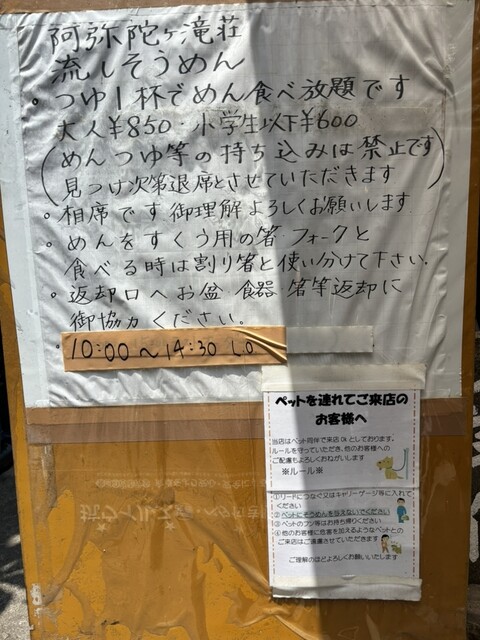 阿弥陀ヶ滝荘
流しそうめん
。つゆ1杯でめん食べ放題です
大人¥850・小学生以下¥600
(めんつゆ等の持ち込みは禁止です
見つけ次第退席とさせていただきます)
。相席です御理解よろしくお願いします
。めんをすくう用の箸フォークと
食べる時は割り箸と使い分けて下さい.
。返却口へお盆 食器・箸等返却に
御協力ください。
。10:00〜14:30 L.O
ペットを連れてご来店の
お客様へ
当店はペット同伴で来店OKとしております。
ルールを守っていただき、他のお客様への
ご配慮もよろしくおねがいします
※ルール※
①リードにつなぐ又はキャリーゲージ等に入れて
ください
②ペットにそうめんを与えないでください
③ペットのフン等はお持ち帰りください
④他のお客様に危害を加えるようなペットとの
ご来店はご遠慮させていただきます
ご理解のほどよろしくお願いいたします